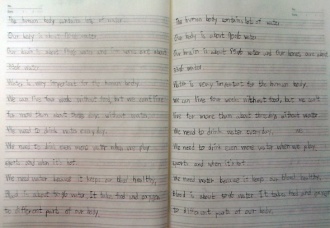 The human body contains lots of water.
Our body is about water.
Our brain is about water and our bones are about
water.
Water is very important for the human body.
We can live few weeks without food, but we can't live
for more than about three days without water.
We need to drink water everyday.
We need to drink even more water when we play
sports and when it's hot.
We need water because it keeps our blood healthy.
Blood is about water. It takes food and oxygen
to different parts of our body.
The human body contains lots of water.
Our body is about water.
Our brain is about water and our bones are about
water.
Water is very important for the human body.
We can live few weeks without food, but we can't
live for more than about three days without water.
We need to drink water everyday.
We need to drink even more water when we play
sports and when it's hot.
We need water because it keeps our blood healthy.
Blood is about water. It takes food and oxygen
to different parts of our body.